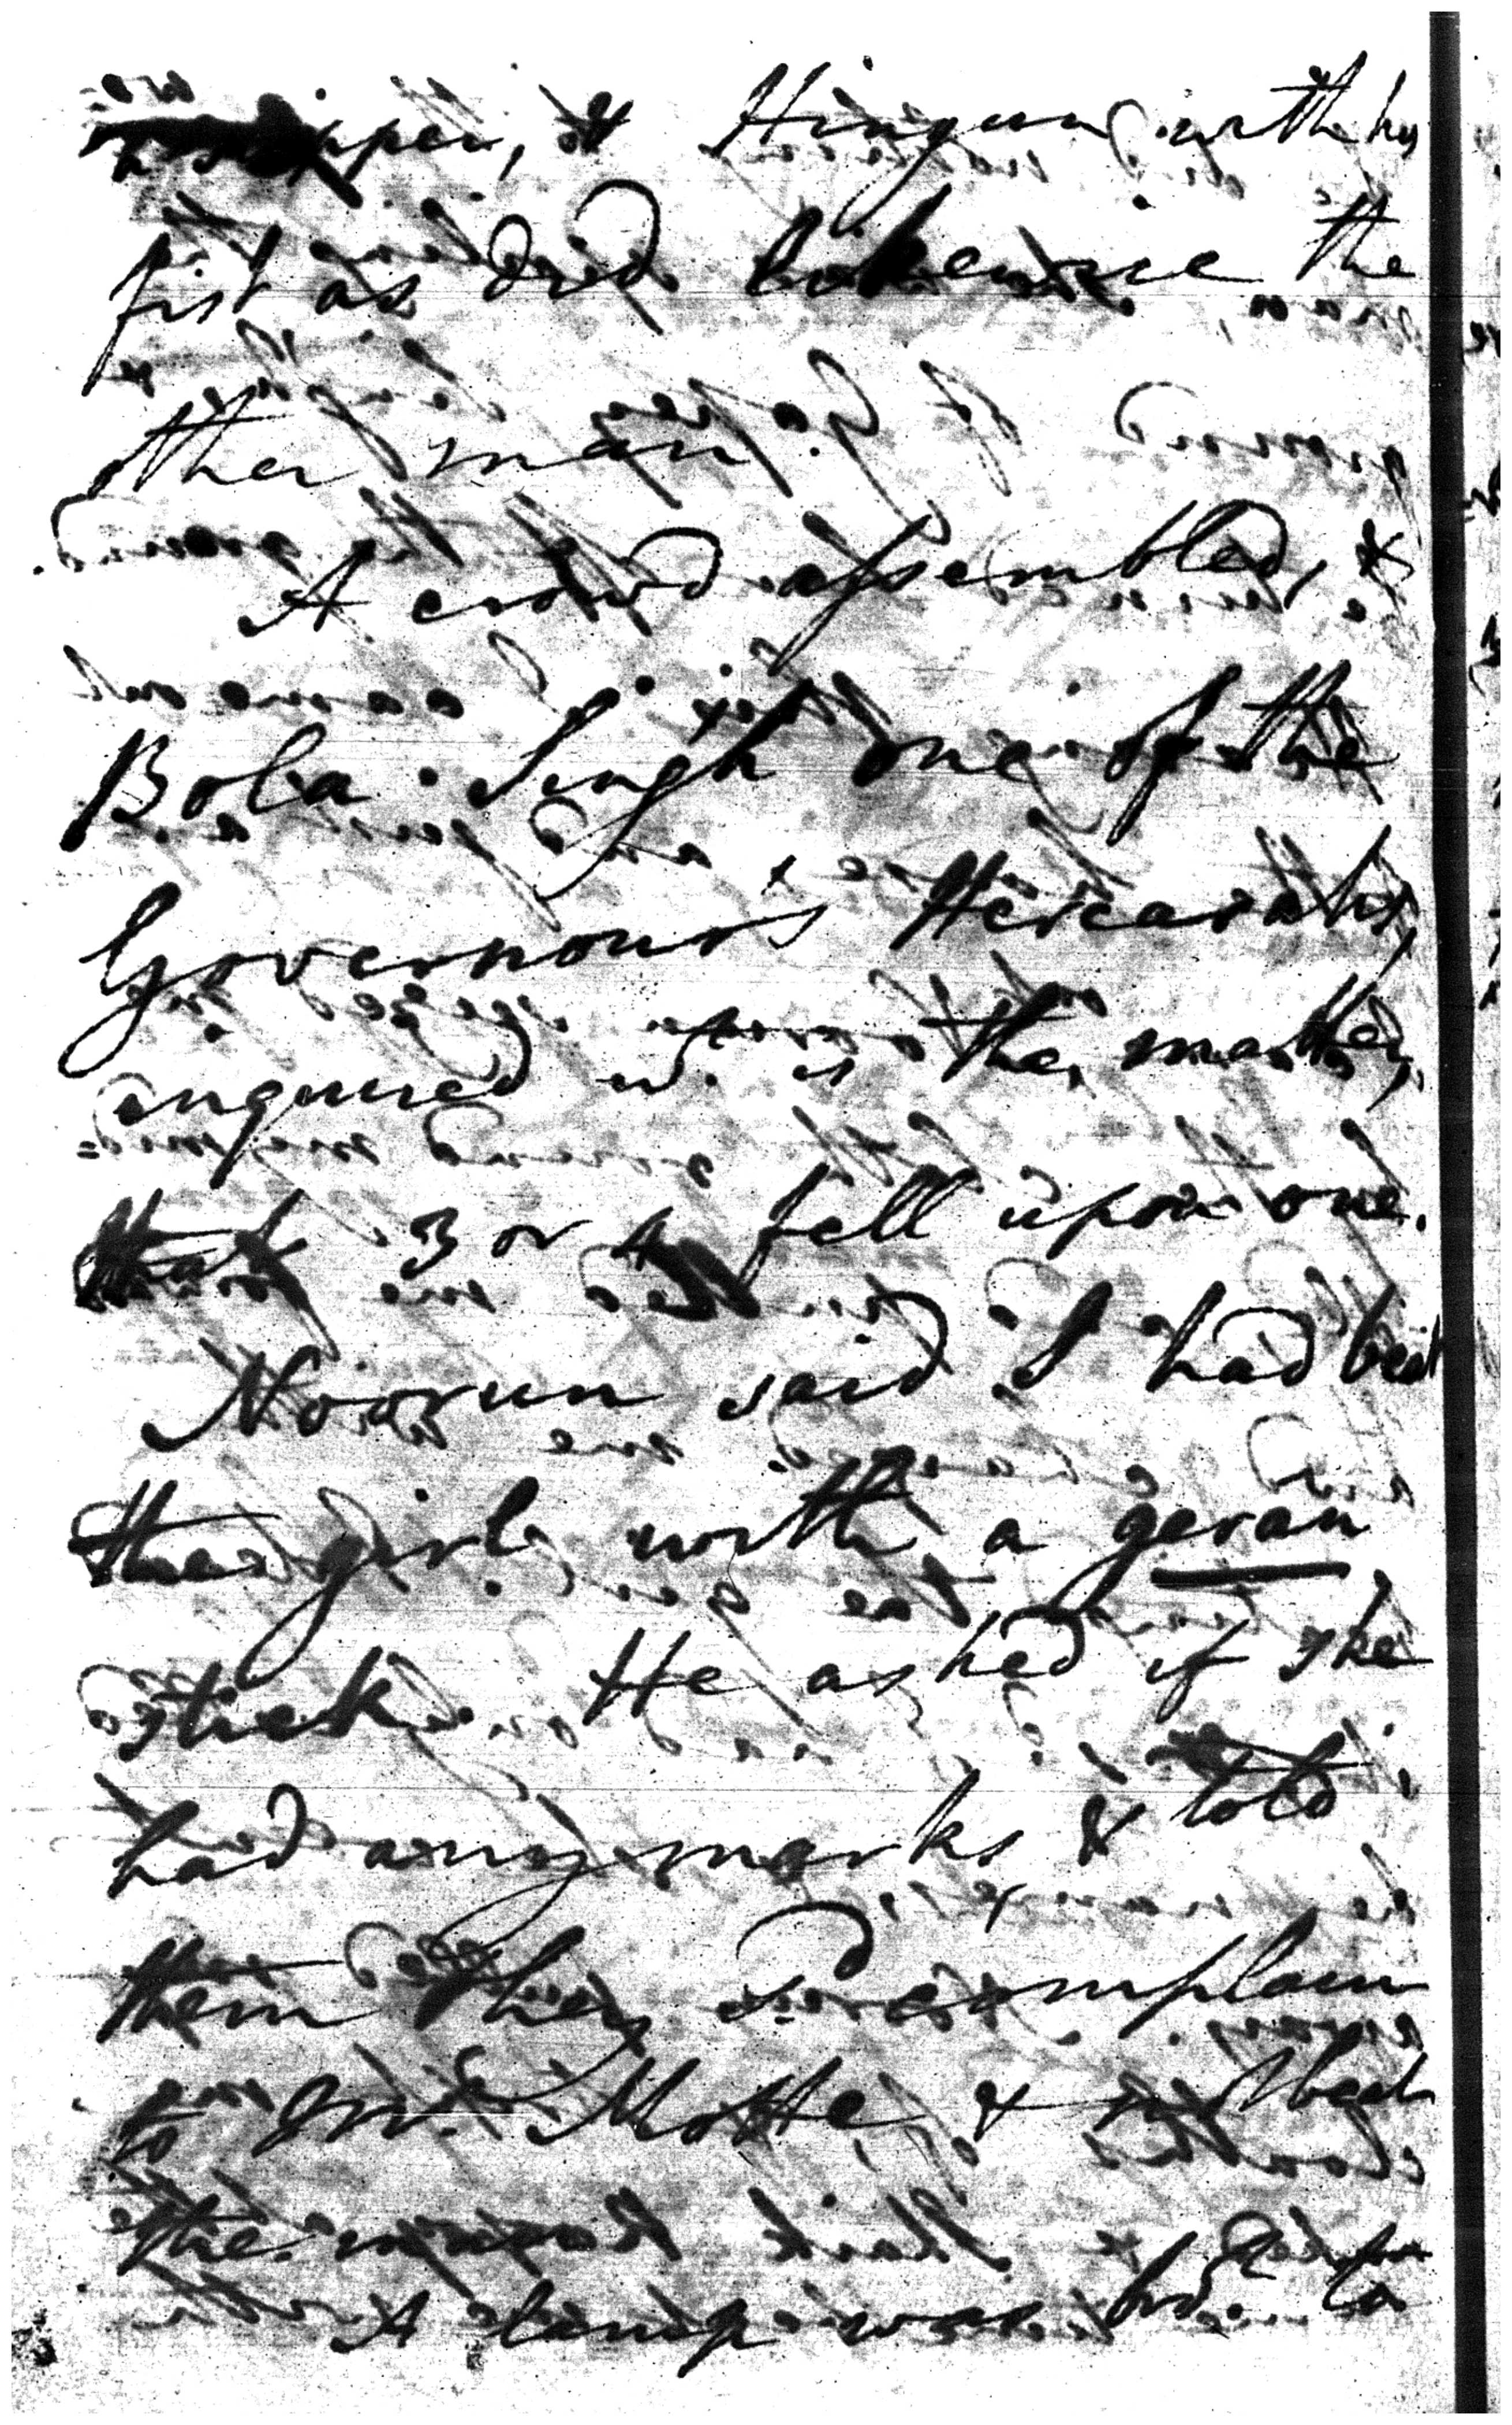 slipper, & Hingun with his
fist as did likewise the
other man.
A crowd assembled, &
Bola Singh one of the
Governours Hircarahs,
enquired wt. is the matter,
that 3 or 4 fell upon one.
Noorun said I had beat
the girl with a geran
stick. He asked if she
had any marks & told
them they sd. complain
to Mr. Motte, &
the
A lamp was brot. to